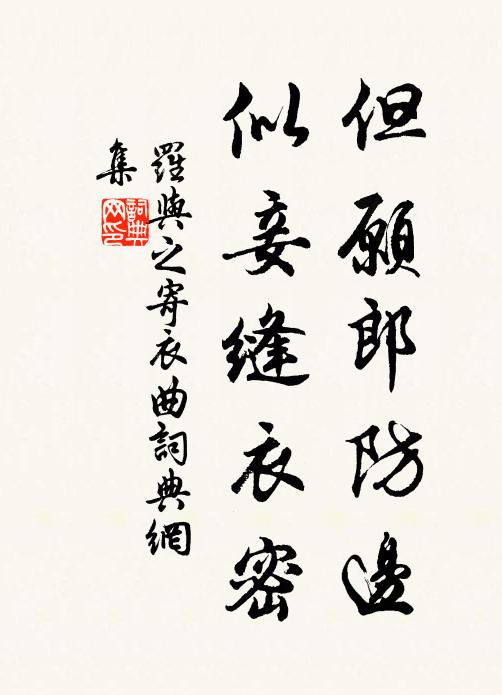 但願郎防邊
似妾縫衣密
羅與之寄衣曲詞典網
集
詞典
网印